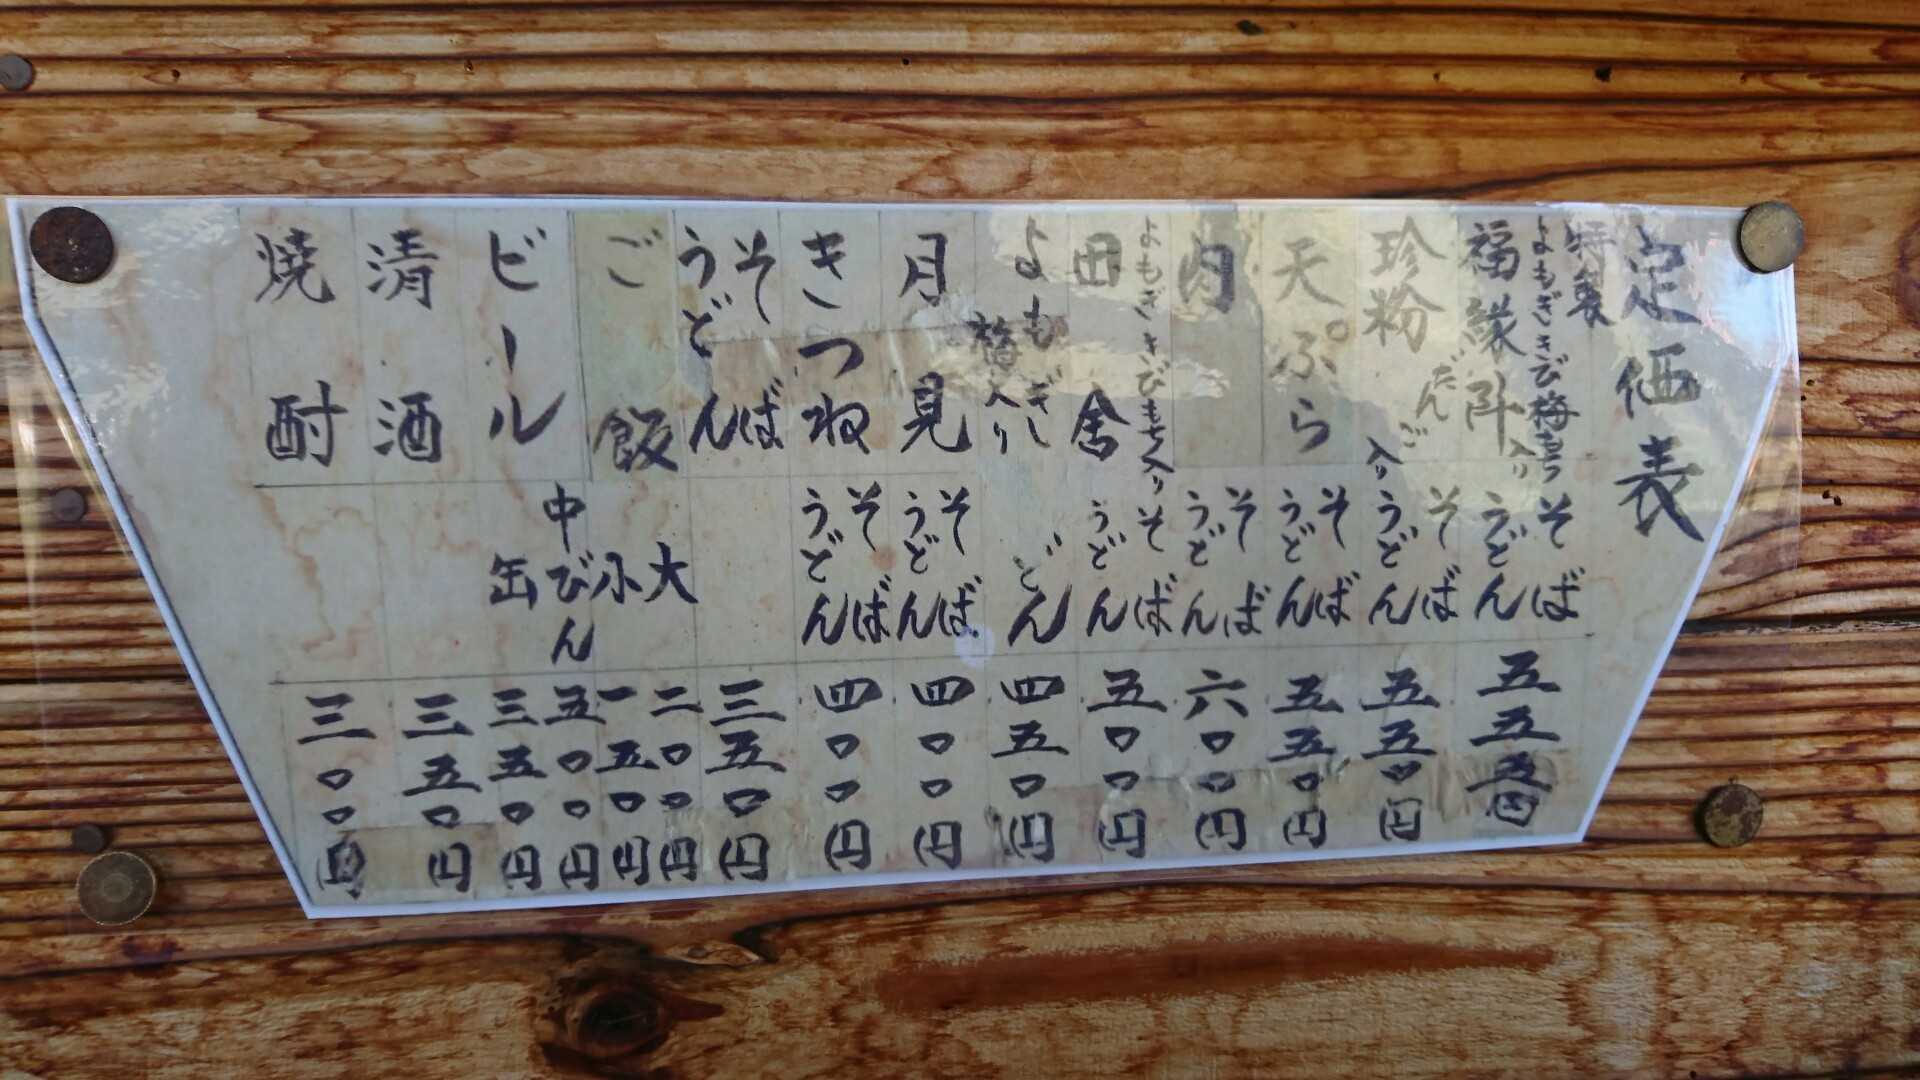 定価表
特製
よもぎきび梅もち入り
福縁阡 そば うどん 五五五円
珍粉 だんご入り そば うどん 五五〇円
天ぷら そば うどん 五五〇円
肉 そば うどん 六〇〇円
よもぎきびもち入り
田舎 そば うどん 五〇〇円
よもぎし 梅入り どん 四五〇円
月見 そば うどん 四〇〇円
きつね そば うどん 四〇〇円
そば うどん 三五〇円
ご飯 大 二〇〇円
小 一五〇円
ビール 中びん 五〇〇円
缶 三五〇円
清酒 三五〇円
焼酎 三〇〇円